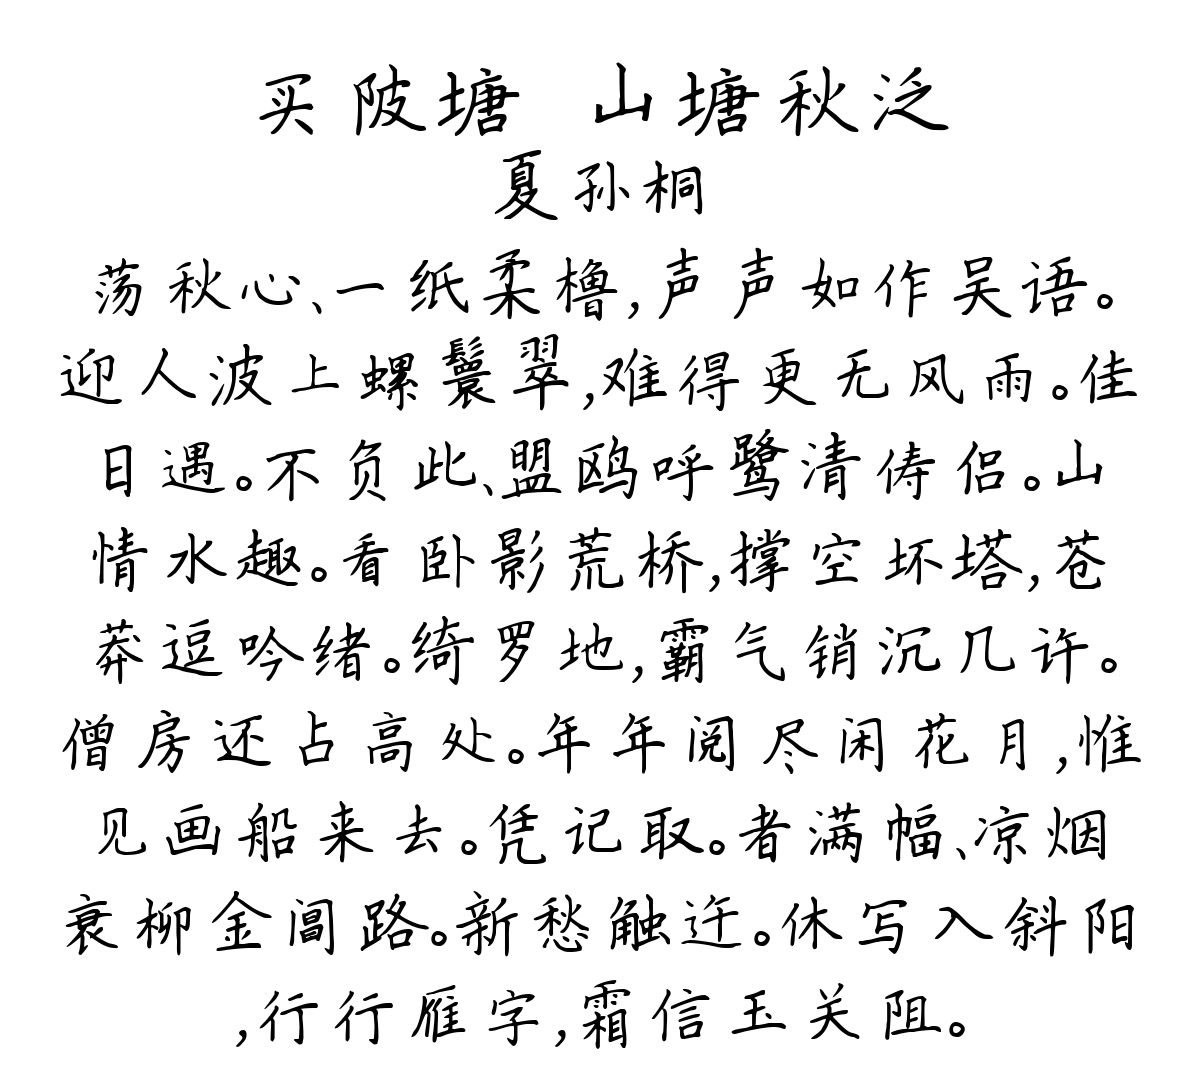 买陂塘 山塘秋泛
夏孙桐
荡秋心、一纸柔橹,声声如作吴语。
迎人波上螺鬟翠,难得更无风雨。佳
日遇。不负此、盟鸥呼鹭清俦侣。山
情水趣。看卧影荒桥,撑空坏塔,苍
莽逗吟绪。绮罗地,霸气销沉几许。
僧房还占高处。年年阅尽闲花月,惟
见画船来去。凭记取。者满幅、凉烟
衰柳金阊路。新愁触迕。休写入斜阳
,行行雁字,霜信玉关阻。